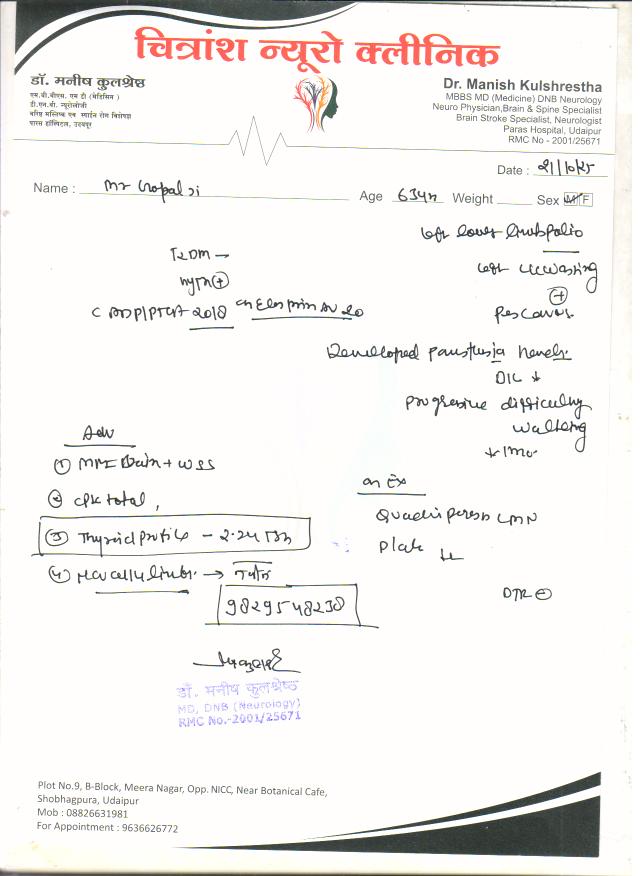 चित्रांश न्यूरो क्लीनिक
डॉ. मनीष कुलश्रेष्ठ
एम.बी.बीएस. एम डी (मेडिसिन)
डी.एन.बी. न्यूरोलॉजी
वरिष्ठ मस्तिष्क एवं स्पाईन रोग विशेषज्ञ
पारस हॉस्पिटल, उदयपुर
Dr. Manish Kulshrestha
MBBS MD (Medicine) DNB Neurology
Neuro Physician,Brain & Spine Specialist
Brain Stroke Specialist, Neurologist
Paras Hospital, Udaipur
RMC No - 2001/25671
Date : 21/10/25
Name : Mr Gopal Ji Age 63 Weight Sex M/F
Left lower limb polio
T2DM
Left LL wasting
HTN (+)
(+)
CAD/PTCA 2018 on AV 20
Pes cavus
Developed
progressive difficulty
walking
Adv
① MRI Brain + WSS
on Ex
② CPK total,
Quadriparesis LMN
③ Thyroid profile - 2.24
④
DTR (-)
9829548238
डॉ. मनीष कुलश्रेष्ठ
MD, DNB (Neurology)
RMC No.-2001/25671
Plot No.9, B-Block, Meera Nagar, Opp. NICC, Near Botanical Cafe,
Shobhagpura, Udaipur
Mob : 08826631981
For Appointment : 9636626772